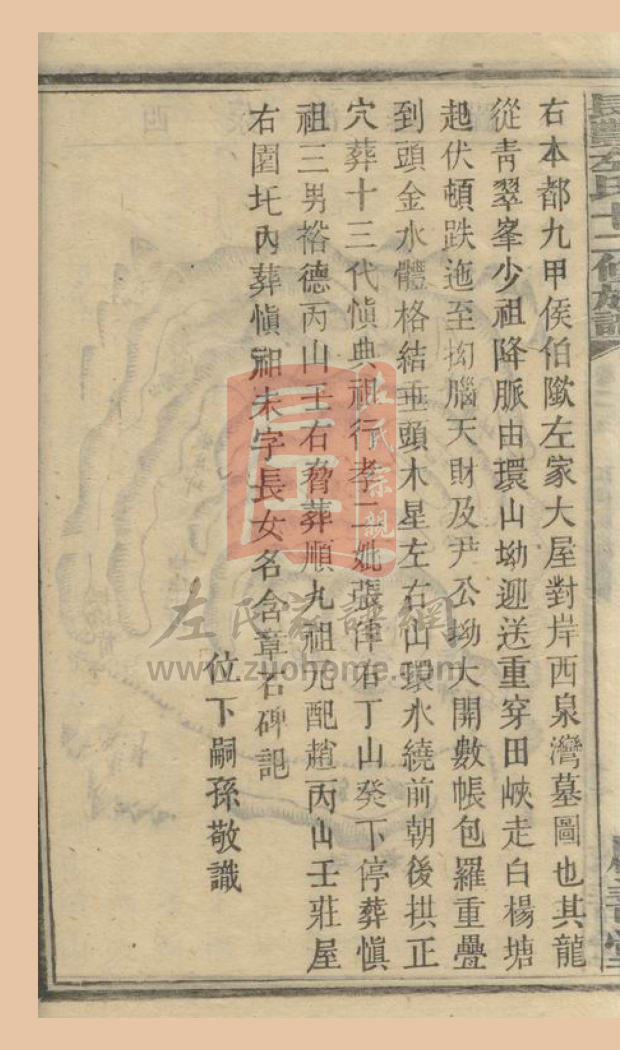 右本都九甲侯伯隞左家大屋對岸西泉灣墓圖也其龍
從靑翠峯少祖降脈由環山坳迎送重穿田峽走白楊塘
起伏頓跌迤至拗腦天財及尹公坳大開數帳包羅重疊
到頭金水體格結垂頭木星左右山環水繞前朝後拱正
穴葬十三代愼典祖行孝二妣張律右丁山癸下停葬愼
祖三男裕德丙山壬右脅葬順九祖元配趙丙山壬莊屋
右園圫內葬愼祖未字長女名含章石碑記
位下嗣孫敬識
左氏宗親
左氏家譜網
www.zuohome.com